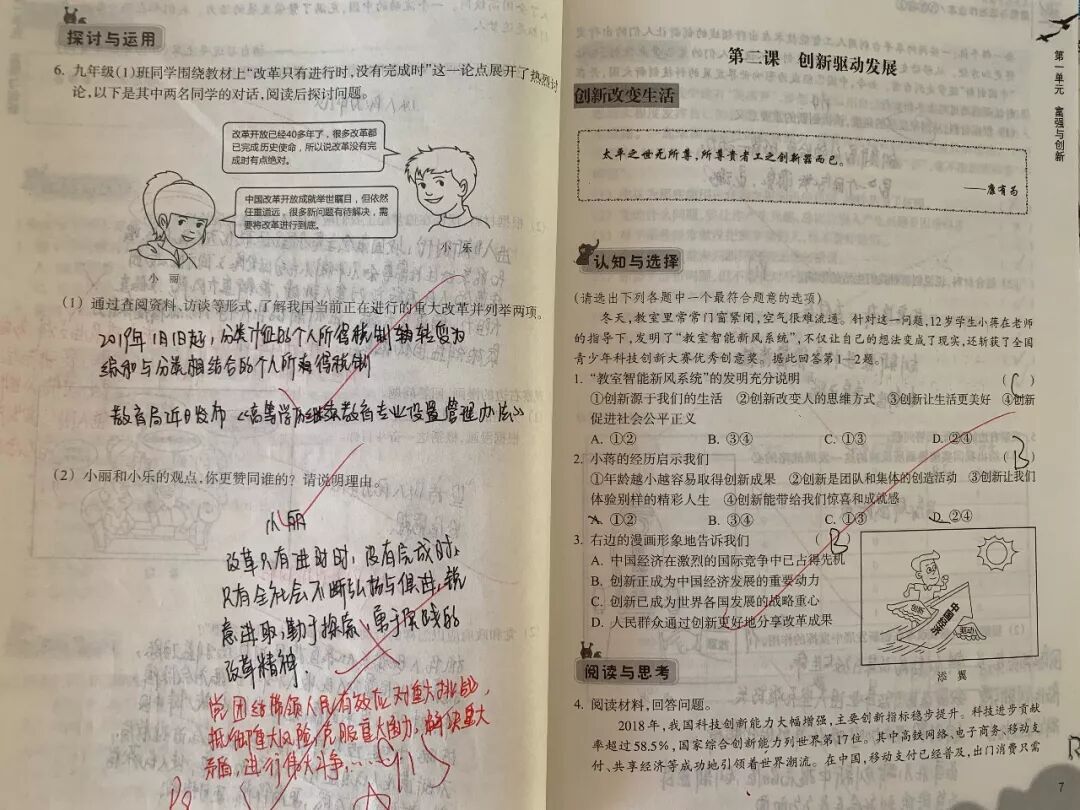 探讨与运用
6. 九年级(1)班同学围绕教材上“改革只有进行时,没有完成时”这一论点展开了热烈讨
论,以下是其中两名同学的对话,阅读后探讨问题。
改革开放已经40多年了,很多改革都
已完成历史使命,所以说改革没有完
成时有点绝对。
中国改革开放成就举世瞩目,但依然
任重道远,很多新问题有待解决,需
要将改革进行到底。
小 乐
小 丽
(1) 通过查阅资料、访谈等形式,了解我国当前正在进行的重大改革并列举两项。
2019年1月1日起,分类计征的个人所得税制 转变为
综和与分类相结合的个人所得税制
教育局近日发布《高等学历继续教育专业设置管理办法》
(2) 小丽和小乐的观点,你更赞同谁的? 请说明理由。
小丽
改革只有进时时,没有完成时,
只有全社会不断弘扬与俱进,锐
意进取,勤于探索,勇于实践的
改革精神
党团结带领人民有效应对重大挑战,
抵御重大风险,克服重大阻力,解决重大
矛盾,进行伟大斗争……
第一单元 富强与创新
第二课 创新驱动发展
创新改变生活
太平之世无所尊,所尊贵者工之创新器而已。
——康有为
认知与选择
(请选出下列各题中一个最符合题意的选项)
冬天,教室里常常门窗紧闭,空气很难流通。针对这一问题,12岁学生小蒋在老师
的指导下,发明了“教室智能新风系统”,不仅让自己的想法变成了现实,还斩获了全国
青少年科技创新大赛优秀创意奖。据此回答第1—2题。
1. “教室智能新风系统”的发明充分说明 ( C )
①创新源于我们的生活 ②创新改变人的思维方式 ③创新让生活更美好 ④创新
促进社会公平正义
A. ①② B. ③④ C. ①③ D. ②④
2. 小蒋的经历启示我们 ( B )
①年龄越小越容易取得创新成果 ②创新是团队和集体的创造活动 ③创新让我们
体验别样的精彩人生 ④创新能带给我们惊喜和成就感
A. ①② B. ③④ C. ①③ D. ②④
3. 右边的漫画形象地告诉我们 ( B )
A. 中国经济在激烈的国际竞争中已占得先机
B. 创新正成为中国经济发展的重要动力
C. 创新已成为世界各国发展的战略重心
D. 人民群众通过创新更好地分享改革成果
创新
中国经济
驱动
添 翼
阅读与思考
4. 阅读材料,回答问题。
2018年,我国科技创新能力大幅增强,主要创新指标稳步提升。科技进步贡献
率超过58.5%,国家综合创新能力列世界第17位。其中高铁网络、电子商务、移动支
付、共享经济等成功地引领着世界潮流。在中国,移动支付已经普及,出门消费只需
7